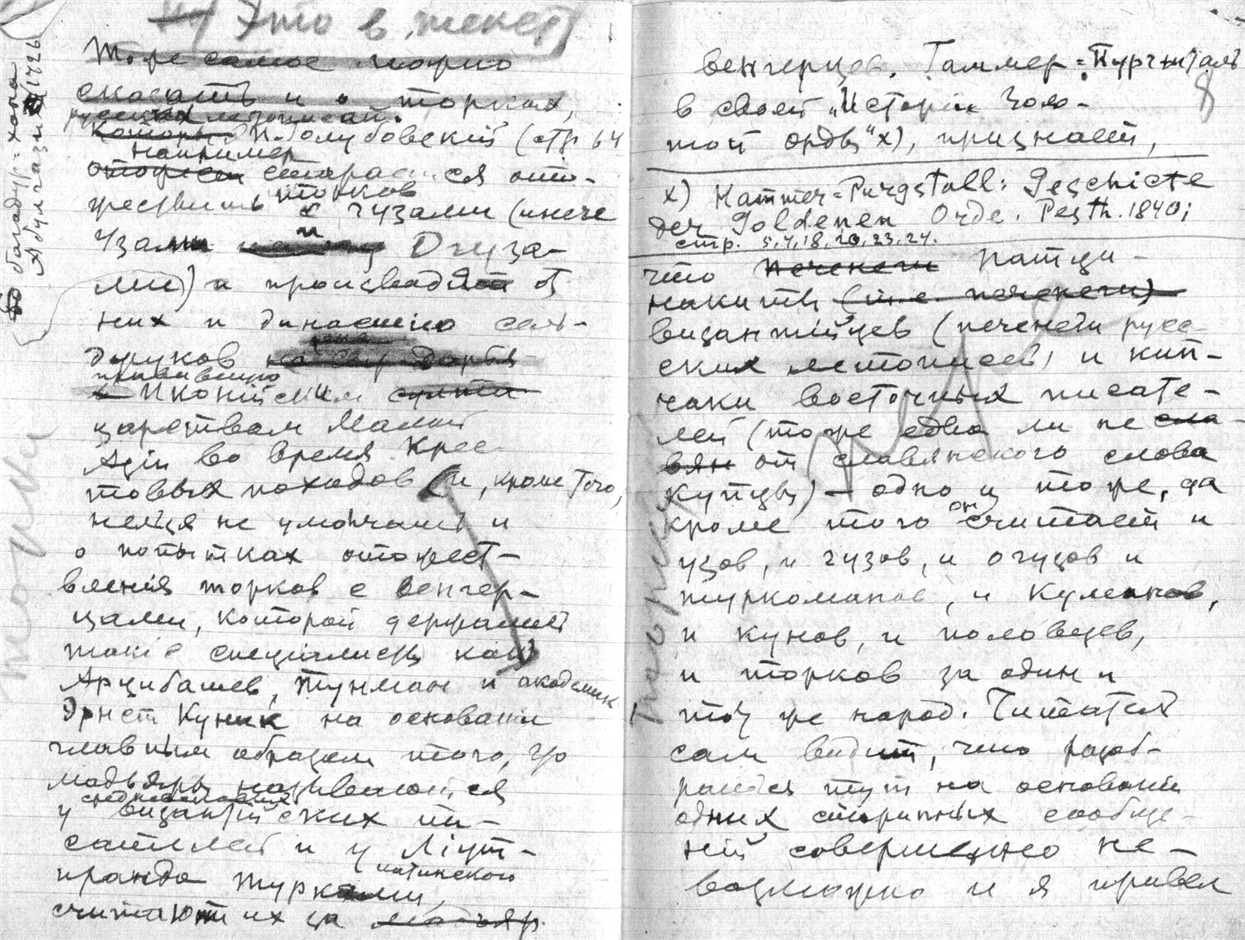 Это в текст
То же самое можно
сказать и о торках,
русских летописей.
П. Голубовский (стр 64
например
старается ото-
жествить торков
с гузами (иначе
узами и Огуза-
ми) и производят от
них и династию сель-
джуков
правившую
Иконийским
царством Малой
Азии во время Крес-
товых походов (и, кроме того,
нельзя не умолчать и
о попытках отожест-
вления торков с венгер-
цами, которой держатся
такие специалисты как
Арцибашев, Тунман и академик
Эрнст Куник на основании
главным образом того, что
мадьяры называются
у средневековых
византийских пи-
сателей и у Лiут-
пранда латинского
турками,
считают их за
багадур-хана
Абулгази 1726
торки
8
венгерцев. Гаммер-Пургшталь
в своей „Истории Золо-
той орды" х), признает,
х) Hammer-Purgstall: Geschichte
der Goldenen Orde. Pesth. 1840;
стр. 5, 7, 18, 20, 23, 24.
что печенеги патци-
накиты (т.е. печенеги)
византийцев (печенеги русс-
ских летописей) и кип-
чаки восточных писате-
лей (тоже едва ли не сла-
вян от славянского слова
купцы) — одно и то же, да
кроме того он считает и
узов, и гузов, и огузов и
туркоманов, и Куманов,
и кунов, и половцев,
и торков за один и
тот же народ. Читатель
сам видит, что разоб-
раться тут на основании
одних старинных сообще-
ний совершенно не-
возможно и я привел
Торки